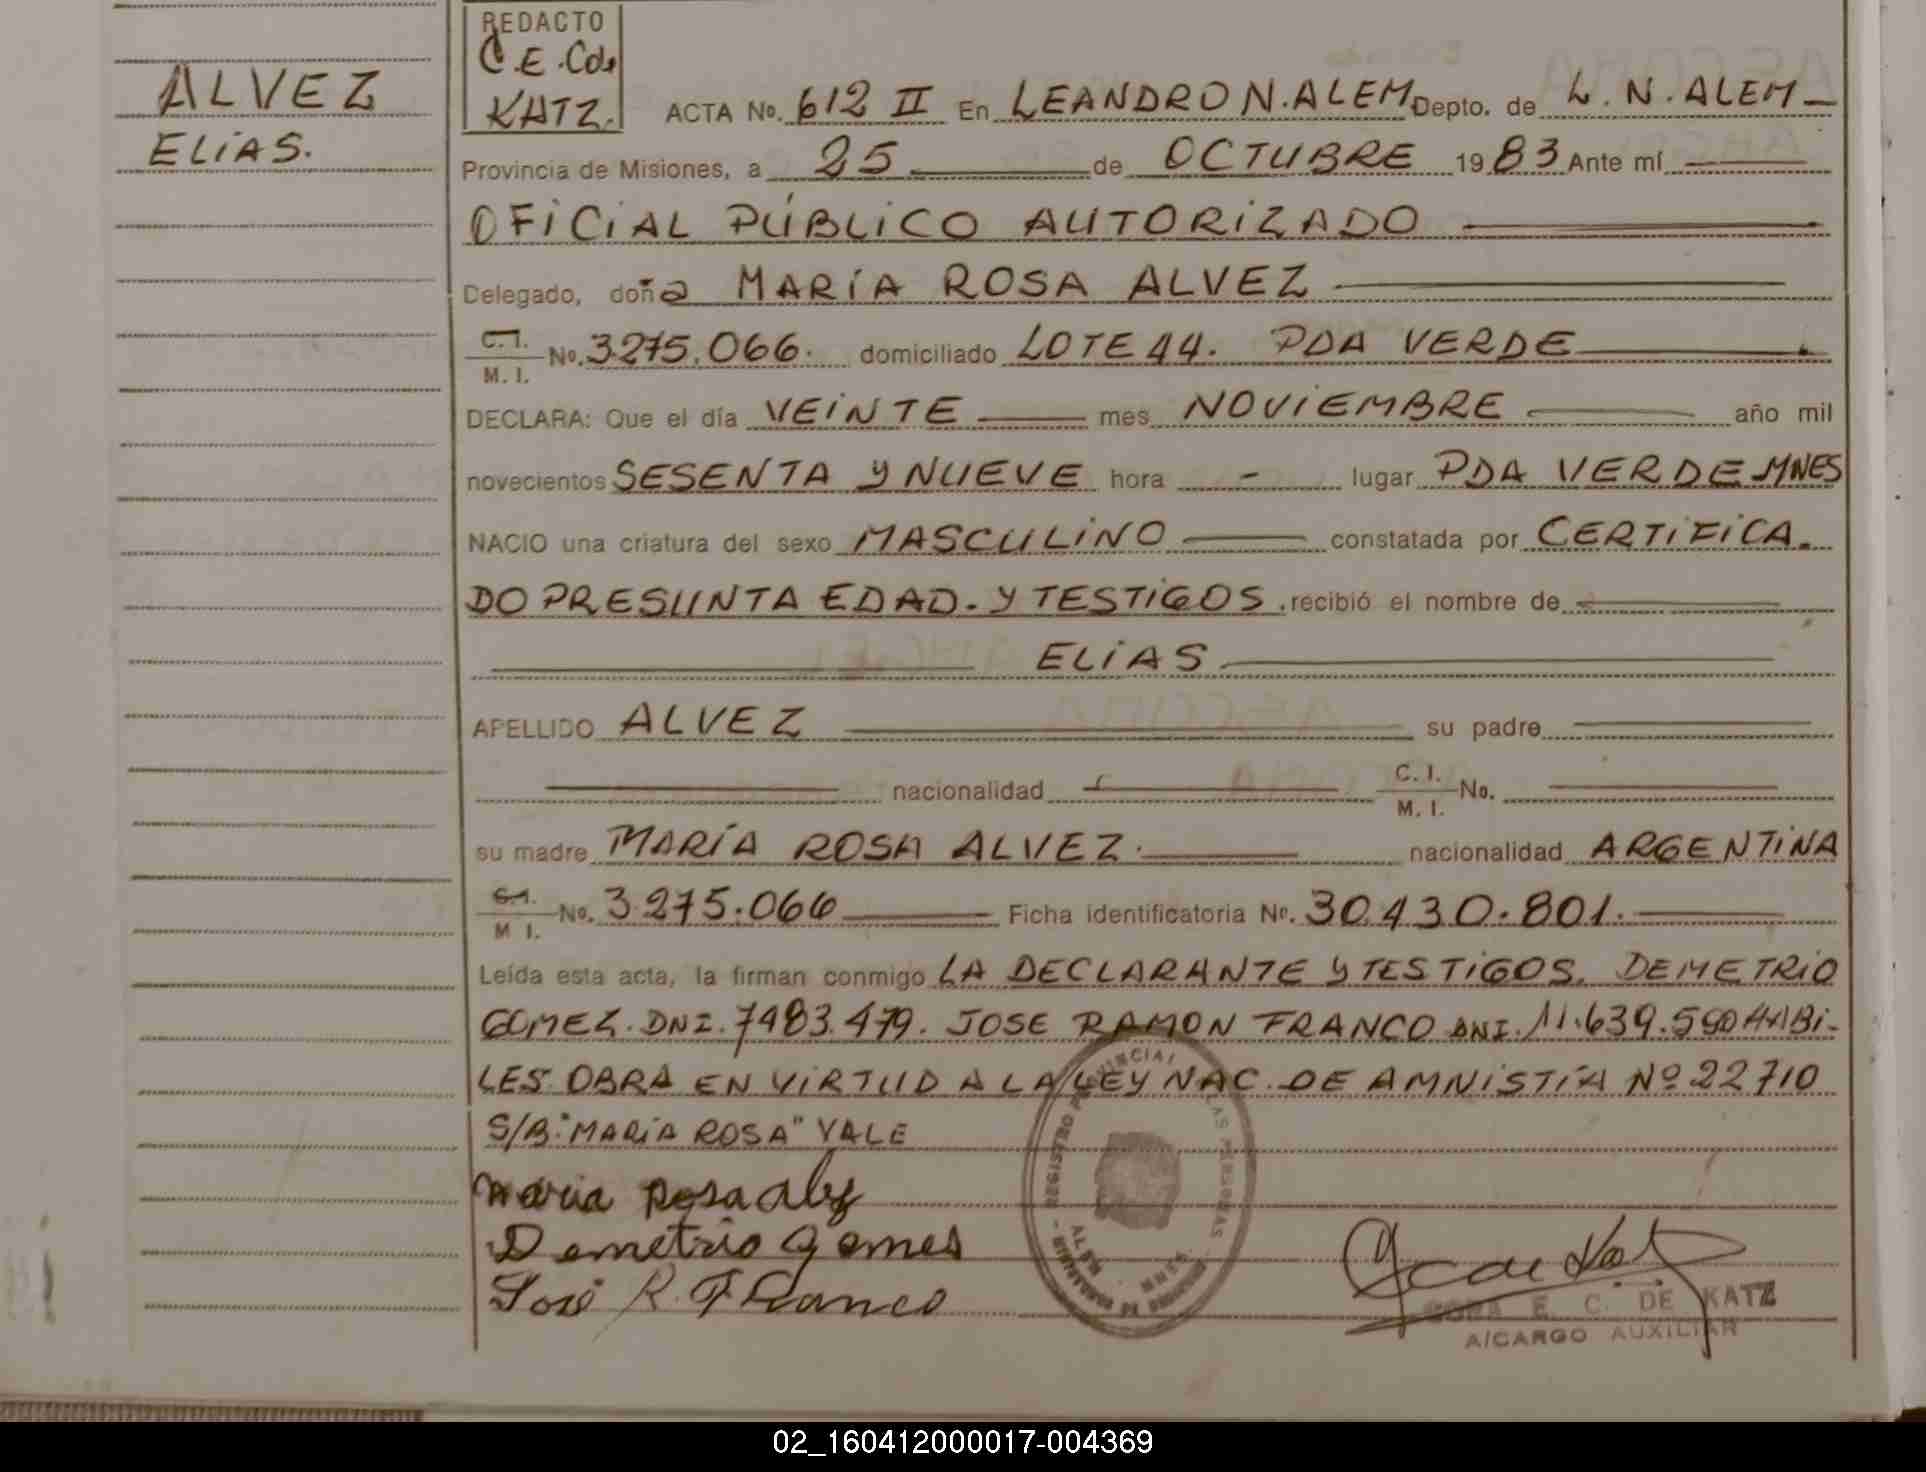 ALVEZ
ELIAS.
REDACTO
C.E.Cde
KATZ.
ACTA No. 612 II En LEANDRO N. ALEM Depto. de L. N. ALEM
Provincia de Misiones, a 25 de OCTUBRE 1983 Ante mí
OFICIAL PÚBLICO AUTORIZADO
Delegado, doña MARÍA ROSA ALVEZ
C.I. / M. I. No. 3.275.066. domiciliado LOTE 44. PDA VERDE
DECLARA: Que el día VEINTE mes NOVIEMBRE año mil
novecientos SESENTA Y NUEVE hora - lugar PDA VERDE MNES
NACIO una criatura del sexo MASCULINO constatada por CERTIFICA.
DO PRESUNTA EDAD. Y TESTIGOS. recibió el nombre de
ELIAS
APELLIDO ALVEZ su padre
nacionalidad C. I. / M. I. No.
su madre MARÍA ROSA ALVEZ. nacionalidad ARGENTINA
C.I. / M I. No. 3.275.066 Ficha identificatoria No. 30.430.801.
Leída esta acta, la firman conmigo LA DECLARANTE Y TESTIGOS. DEMETRIO
GOMEZ. DNI. 7483.479. JOSE RAMON FRANCO DNI. 11.639.590 HABI-
LES. OBRA EN VIRTUD A LA LEY NAC. DE AMNISTÍA Nº 22710
S/B: "MARÍA ROSA" VALE
Maria Rosa Alvez
Demetrio Gomes
José R. Franco
E. C. DE KATZ
A/CARGO AUXILIAR
02_160412000017-004369